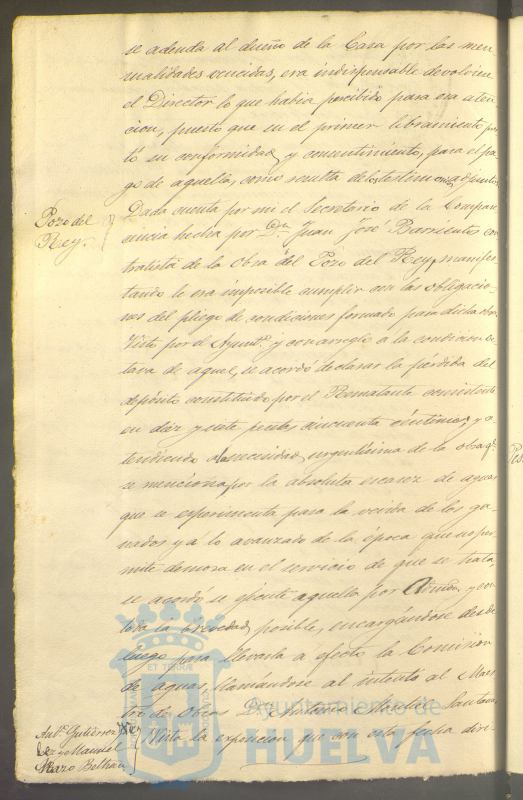 se adeuda al dueño de la Casa por las men
sualidades vencidas, era indispensable devolviese
el Director lo que habia percibido para esa aten
cion, puesto que en el primer libramiento pres
tó su conformidad y consentimiento, para el pa
go de aquella, como resulta de los
Pozo del
Rey.
Dada cuenta por mi el Secretario de la Compare
cencia hecha por Dn. Juan José Barrientos con
tratista de la obra del Pozo del Rey, manifes
tando le era imposible cumplir con las obligacio
nes del pliego de condiciones formado para dicha obra
Visto por el Ayuntº. y con arreglo á la condicion oc
tava de aquel, se acordó declarar la pérdida del
depósito constituido por el Rematante consistente
en diez y siete pesetas cincuenta céntimos, y a
tendiendo a la necesidad urgentísima de la obra qe.
se menciona, por la absoluta escasez de aguas
que se experimenta para la venida de los ga
nados y á lo avanzado de la época que no per
mite demora en el servicio de que se trata,
se acordó se efectúe aquella por Admon. y con
toda la brevedad posible, encargándose desde
luego para llevarla a efecto la Comision
de aguas llamándose al intento al Maes
tro de Obras D.
Antº. Gutiérrez
y Manuel
Mazo Beltran
Vista la exposicion que con esta fecha diri-
ET TERRÆ
Ayuntamiento de
HUELVA